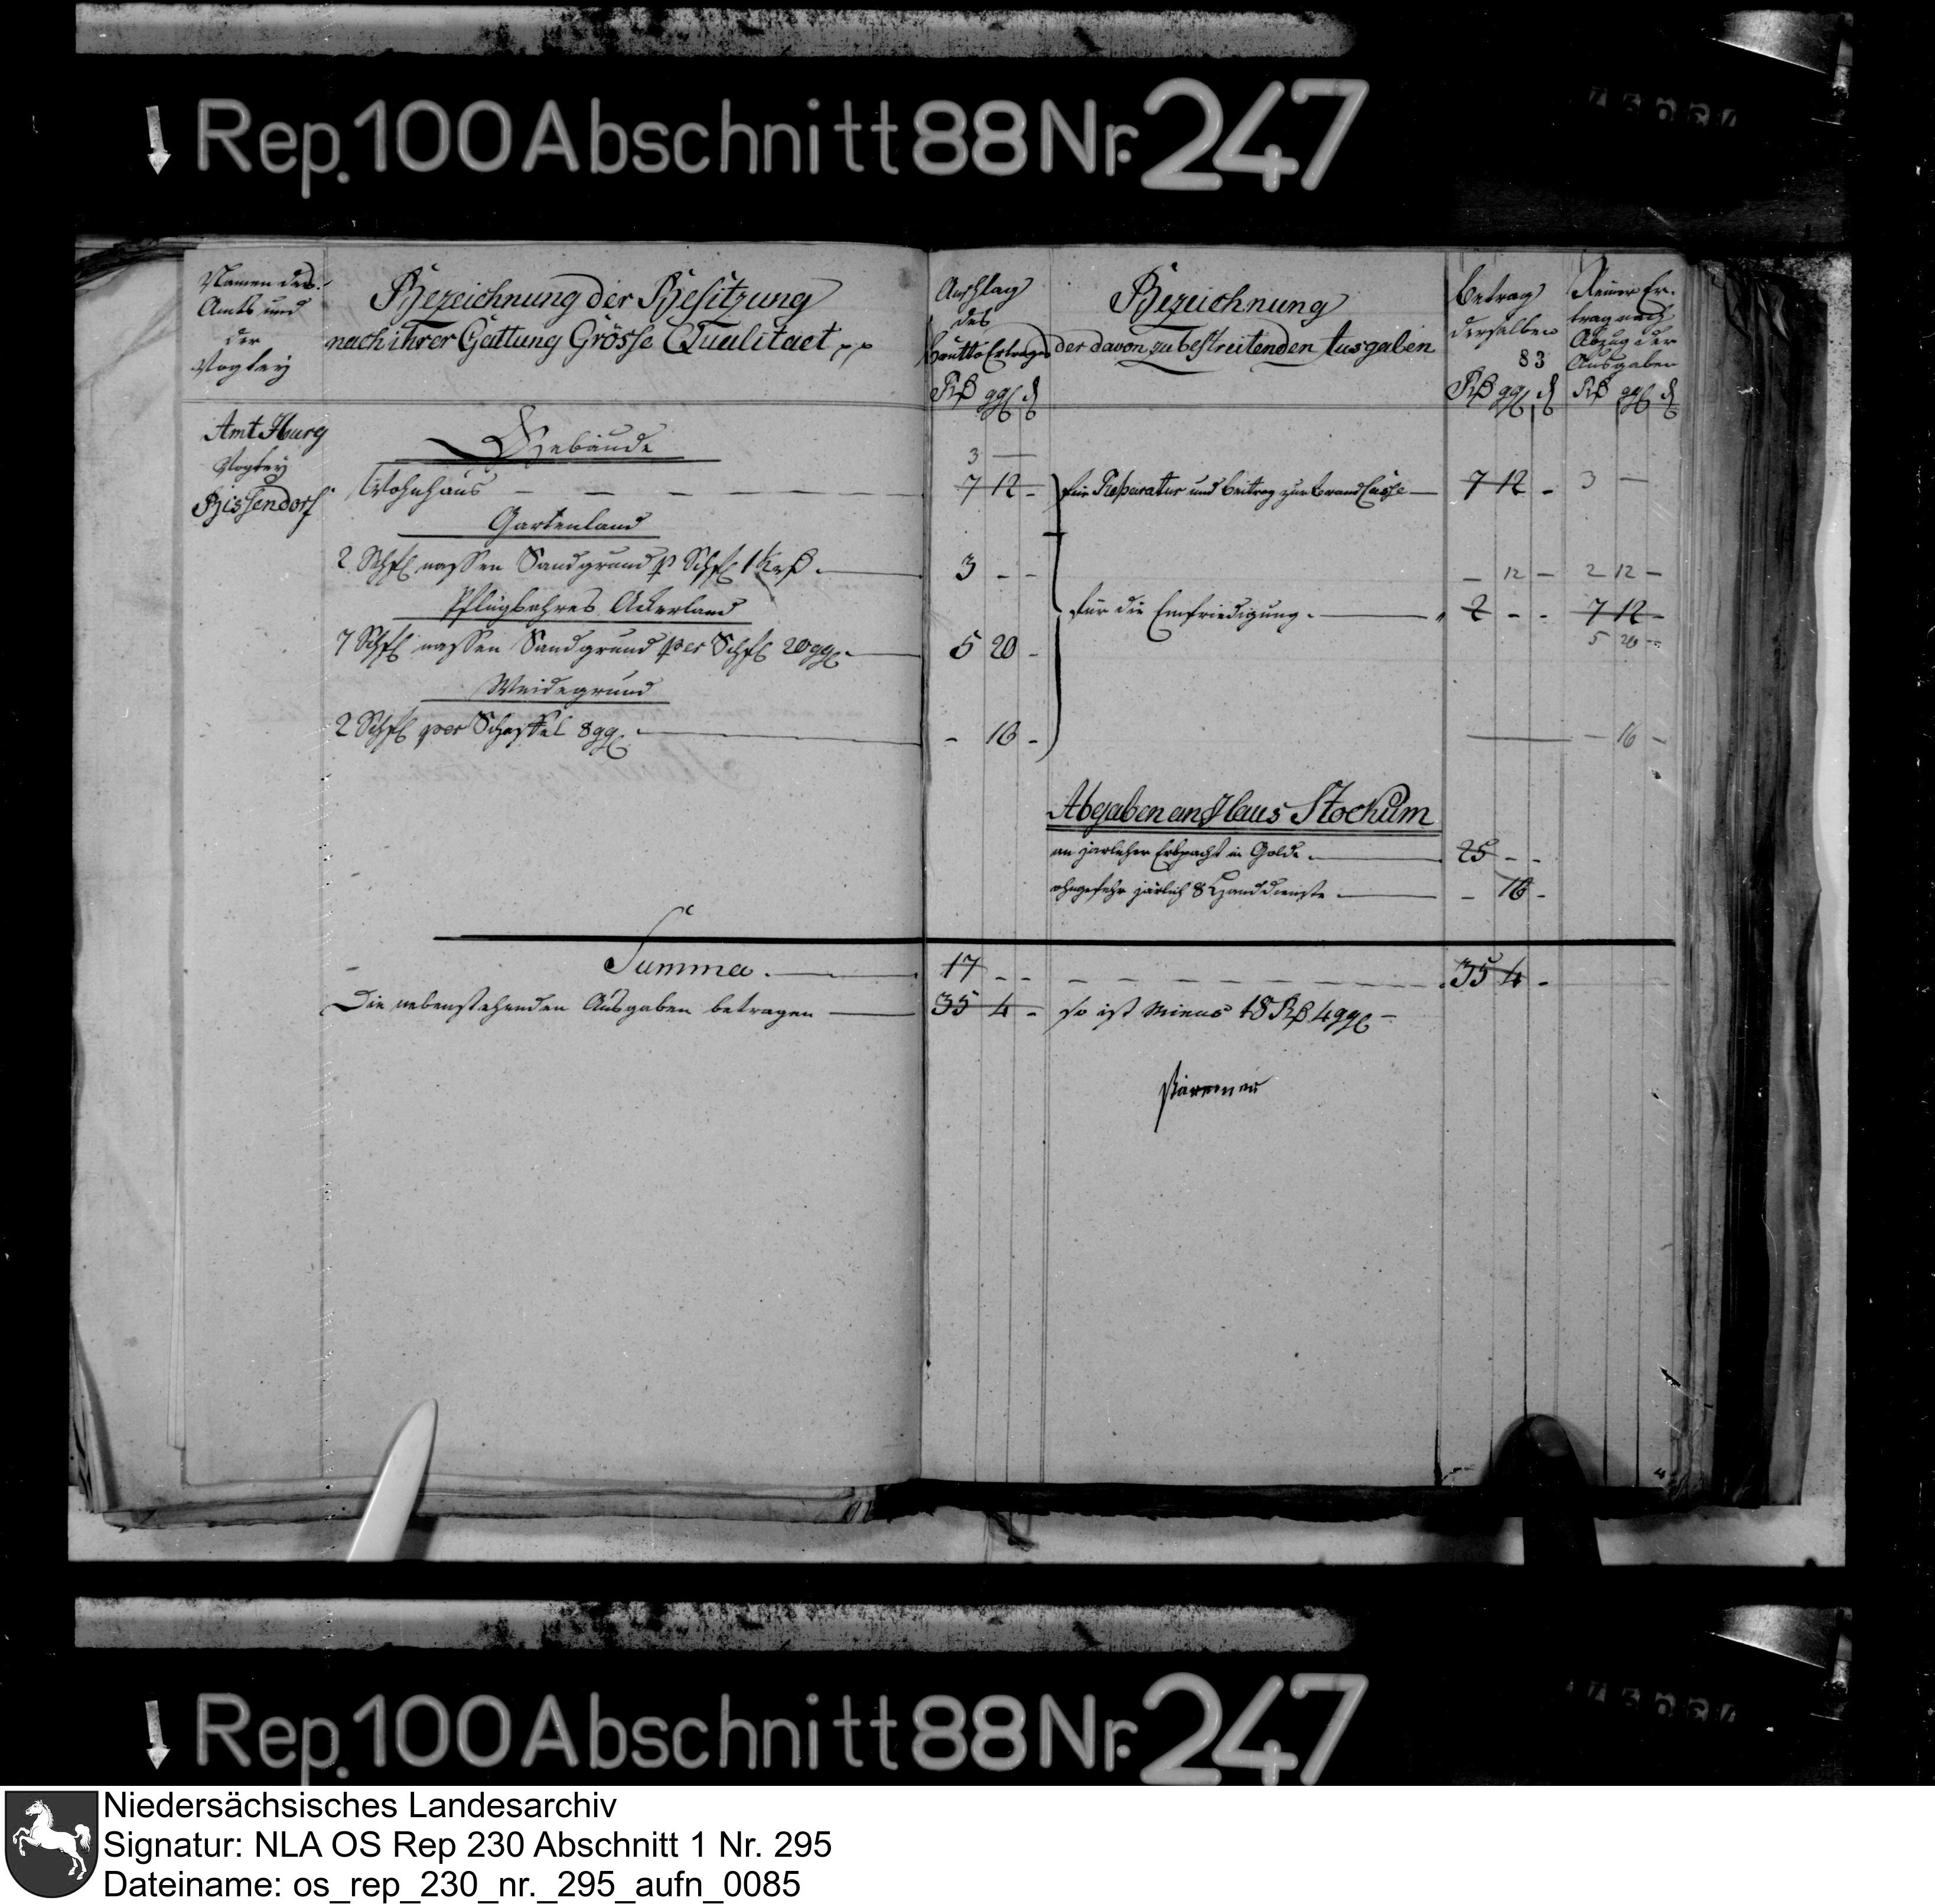 Rep. 100 Abschnitt 88 Nr. 247
Namen des
Amts und
der
Vogtey
Bezeichnung der Besitzung
nach ihrer Gattung Grösse Qualitaet pp
Anschlag
des
Brutto Ertrages
Rß ggl d
Bezeichnung
der davon zu bestreitenden Ausgaben
Betrag
derselben
83
Rß ggl d
Reiner Er-
trag nach
Abzug der
Ausgaben
Rß ggl d
Amt Iburg
Vogtey
Bissendorf
Gebäude
3 —
Wohnhaus — — — — — — 7 12 - für Reparatur und Beitrag zur Brand Casse — 7 12 - 3 —
Gartenland
2 Schfl nassen Sandgrund p Schfl 1 — 3 - - — 12 — 2 12 —
Pflugbahres Ackerland
für die Einfriedigung. — 2 - - 7 12 —
7 Schfl nassen Sandgrund per Schfl 20 ggl. — 5 20 - 5 20 -
Weidegrund
2 Schfl per Scheffel 8 ggl. — - 16 - — — 16 —
Abgaben an Haus Stockum
an jarlicher Erbpacht in Golde. — 25 - -
ohngefehr järlich 8 Handdienste — - 16 -
Summa. — 17 - - — — — — — 35 4 -
Die nebenstehenden Ausgaben betragen — 35 4 - so ist Minus 18 Rß 4 ggl -
Rep. 100 Abschnitt 88 Nr. 247
Niedersächsisches Landesarchiv
Signatur: NLA OS Rep 230 Abschnitt 1 Nr. 295
Dateiname: os_rep_230_nr._295_aufn_0085